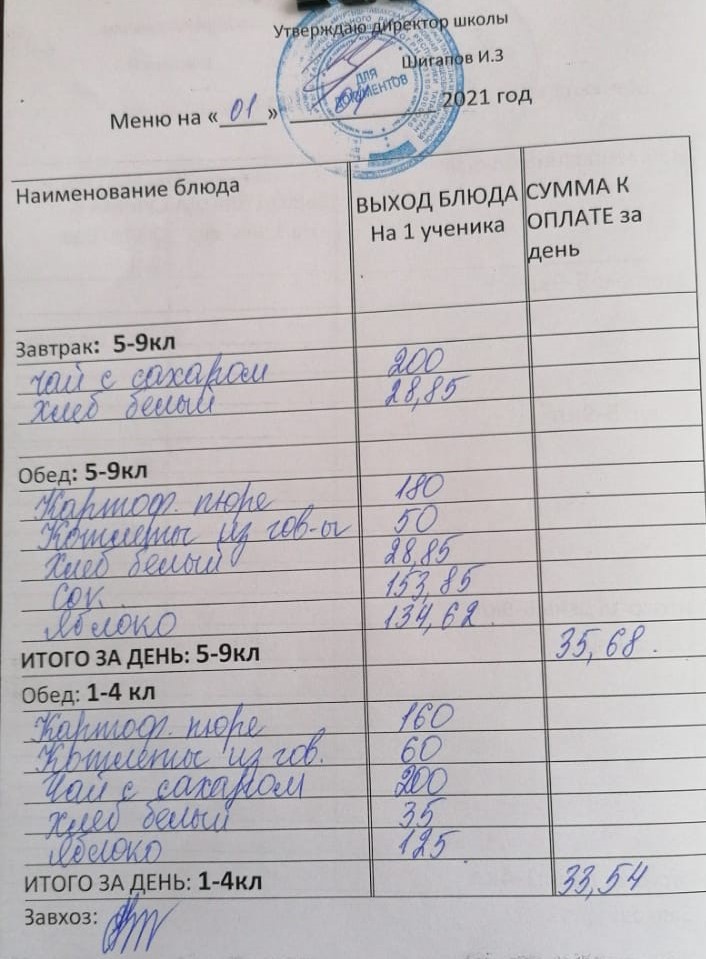 Утверждаю директор школы
Шигапов И.З
ДЛЯ
ДОКУМЕНТОВ
Меню на « 01 » 2021 год
Наименование блюда ВЫХОД БЛЮДА На 1 ученика СУММА К ОПЛАТЕ за день
Завтрак: 5-9кл
Чай с сахаром 200
Хлеб белый 28,85
Обед: 5-9кл
Картоф. пюре 180
Котлеты из гов-ы 50
Хлеб белый 28,85
Сок. 153,85
Яблоко 134,62
ИТОГО ЗА ДЕНЬ: 5-9кл 35,68.
Обед: 1-4 кл
Картоф. пюре 160
Котлеты из гов. 60
Чай с сахаром 200
Хлеб белый 35
Яблоко 125
ИТОГО ЗА ДЕНЬ: 1-4кл 33,54
Завхоз: